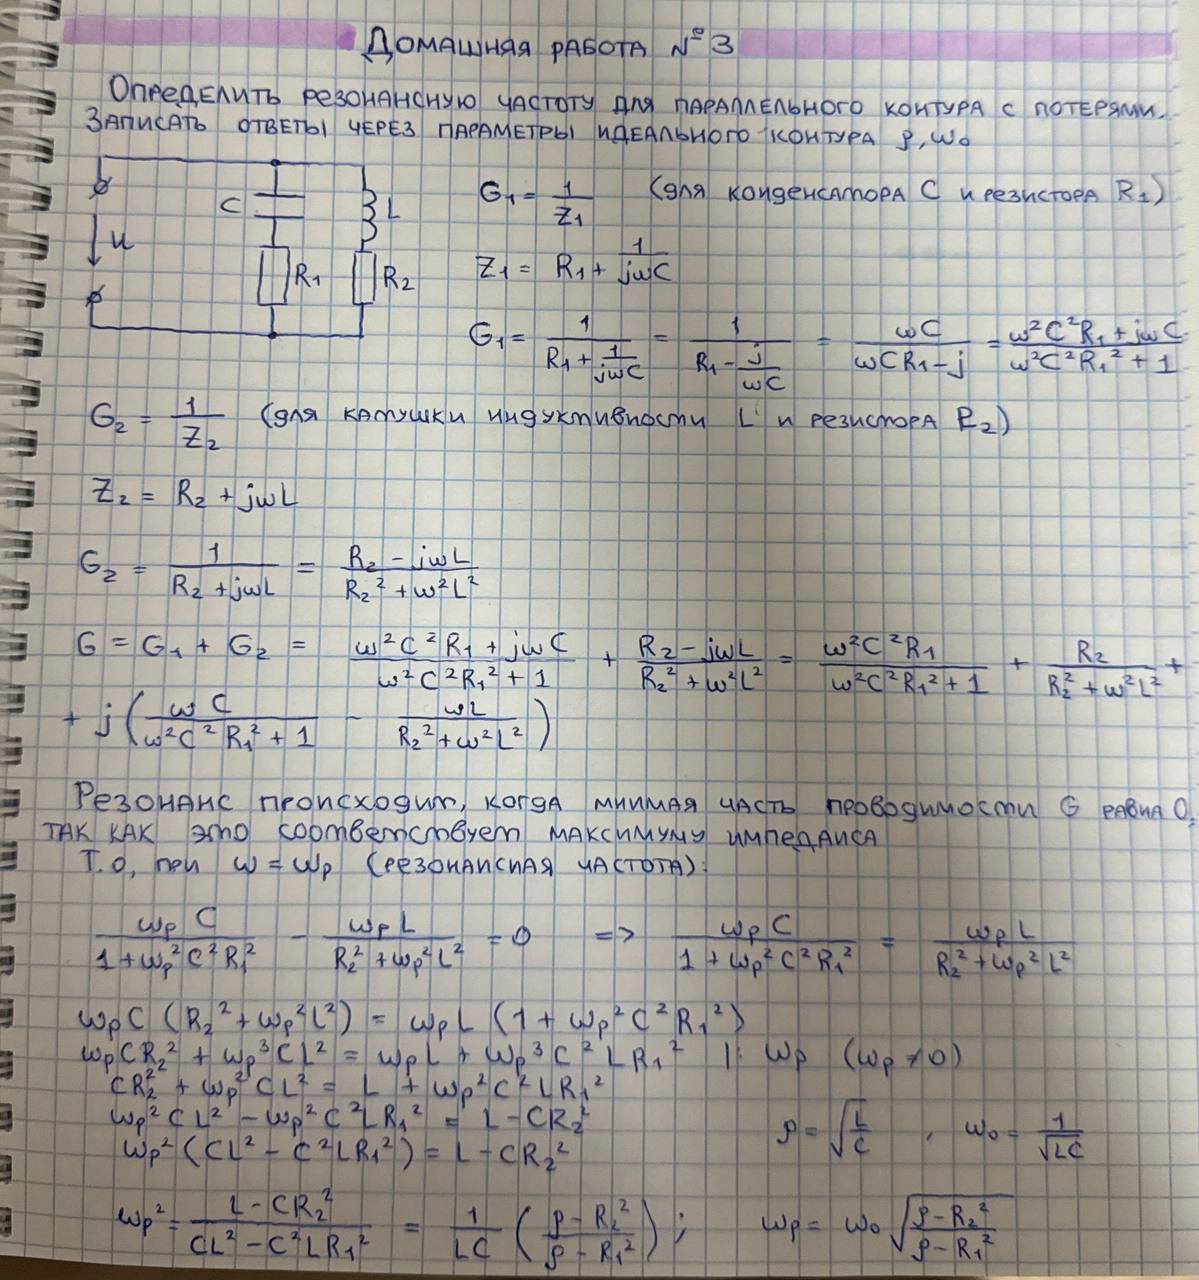 Домашняя работа №3
Определить резонансную частоту для параллельного контура с потерями.
Записать ответы через параметры идеального контура ρ, ω₀
C L U R₁ R₂
G₁ = 1/Z₁ (для конденсатора C и резистора R₁)
Z₁ = R₁ + 1/(jωC)
G₁ = 1/(R₁ + 1/(jωC)) = 1/(R₁ - j/(ωC)) = ωC/(ωCR₁ - j) = (ω²C²R₁ + jωC)/(ω²C²R₁² + 1)
G₂ = 1/Z₂ (для катушки индуктивности L и резистора R₂)
Z₂ = R₂ + jωL
G₂ = 1/(R₂ + jωL) = (R₂ - jωL)/(R₂² + ω²L²)
G = G₁ + G₂ = (ω²C²R₁ + jωC)/(ω²C²R₁² + 1) + (R₂ - jωL)/(R₂² + ω²L²) = ω²C²R₁/(ω²C²R₁² + 1) + R₂/(R₂² + ω²L²) +
+ j(ωC/(ω²C²R₁² + 1) - ωL/(R₂² + ω²L²))
Резонанс происходит, когда мнимая часть проводимости G равна 0,
так как это соответствует максимуму импеданса
Т.О, при ω = ωₚ (резонансная частота):
ωₚC/(1 + ωₚ²C²R₁²) - ωₚL/(R₂² + ωₚ²L²) = 0 => ωₚC/(1 + ωₚ²C²R₁²) = ωₚL/(R₂² + ωₚ²L²)
ωₚC (R₂² + ωₚ²L²) = ωₚL (1 + ωₚ²C²R₁²)
ωₚCR₂² + ωₚ³CL² = ωₚL + ωₚ³C²LR₁² |: ωₚ (ωₚ ≠ 0)
CR₂² + ωₚ²CL² = L + ωₚ²C²LR₁²
ωₚ²CL² - ωₚ²C²LR₁² = L - CR₂²
ωₚ²(CL² - C²LR₁²) = L - CR₂²
ρ = √(L/C) , ω₀ = 1/√(LC)
ωₚ² = (L - CR₂²)/(CL² - C²LR₁²) = 1/(LC) ((ρ - R₂²)/(ρ - R₁²)) ; ωₚ = ω₀ √((ρ - R₂²)/(ρ - R₁²))